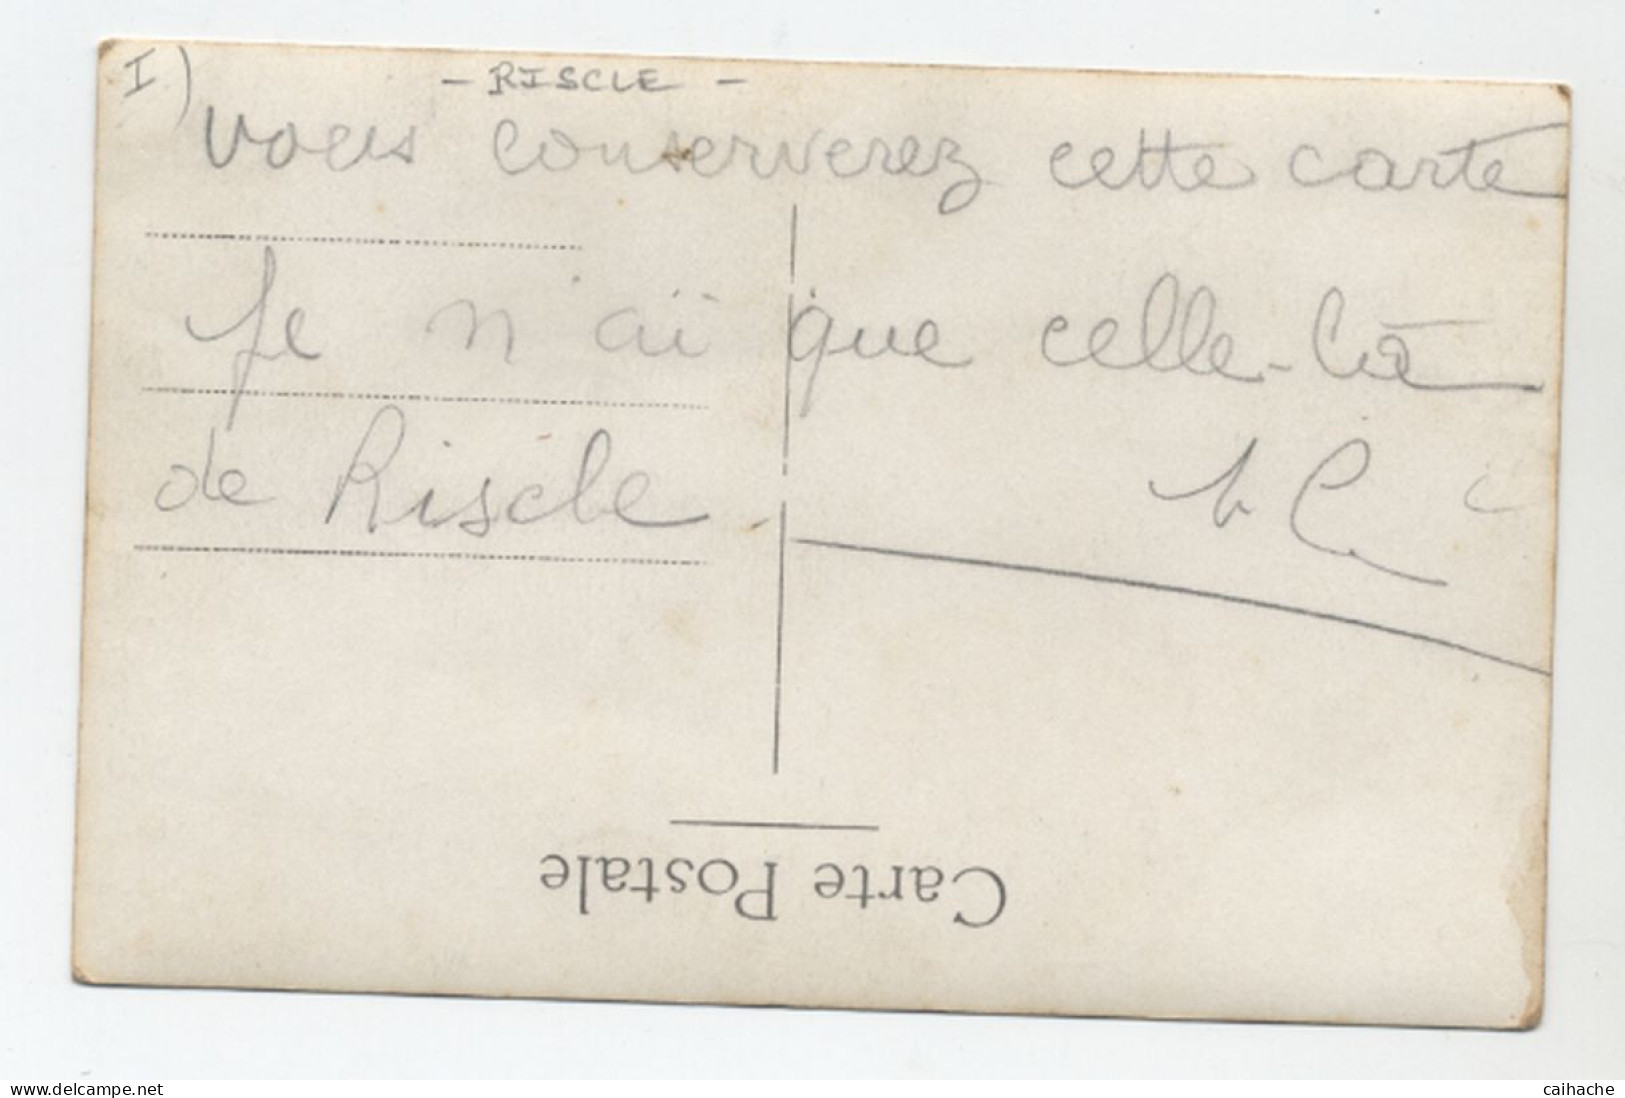 I) - RISCLE -
vous conserverez cette carte
Je n'ai que celle-là
de Riscle
Carte Postale
www.delcampe.net
caihache